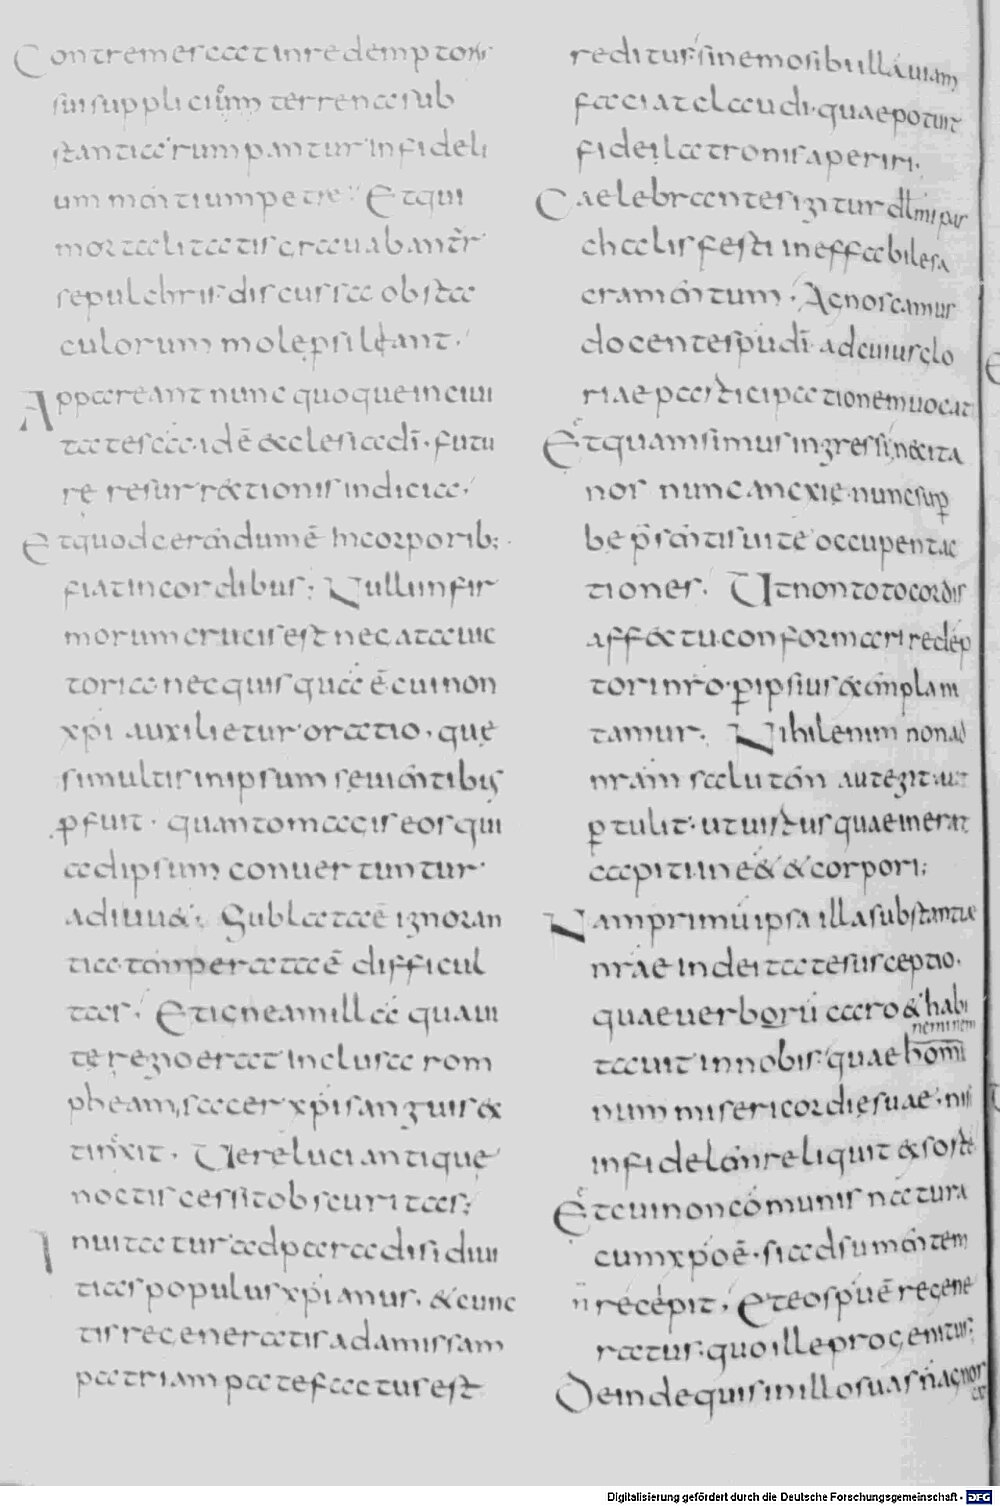 Contremescat in redemptoris
sui supplicium terrena sub
stantia rumpantur infideli
um mentium petre. Et qui
mortalitatis grauabantr
sepulchris discussa obsta
culorum mole psiliant.
Appareant nunc quoque in ciui
tate sca. id ē ecclesia dī. futu
rę resurrectionis indicia,
Et quod gerendum ē In corporib;
fiat in cordibus; Nulli infir
morum crucis est negata uic
toria nec quisquā ē cui non
xpi auxilietur oratio. que
si multis in ipsum seuientibus
profuit. quanto magis eos qui
ad ipsum conuertuntur
adiuuet; Sublata ē ignoran
tia temperata ē difficul
tas. Et igneam illā qua ui
tę regio erat inclusa rom
pheam, sacer xpi sanguis ex
tinxit. Uere luci antique
noctis cessit obscuritas;
Inuitatur ad paradisi diui
tias populus xpianus. & cunc
tis regeneratis ad amissam
patriam patefactus est
reditus; si nemo sibi illā uiam
faciat claudi. quae potuit
fidei latronis aperiri.
Caelebrantes igitur dl̄mi pas
chalis festi ineffabile sa
cramentum. Agnoscamus
docente spū dī. ad cuius glo
riae participationem uocati
Et quam simus ingressi, nec ita
nos nunc anxie. nunc sup
be p̄sentis uite occupent ac
tiones. Ut non toto cordis
affectu. conformari redēp
tori nr̄o. p ipsius exempla ni
tamur. Nihil enim non ad
nram salutem aut egit. aut
ptulit. ut uirtus quae inerat
capiti. inee& & corpori;
Nam primū ipsa illa substantiae
nrae in deitate susceptio.
quae uerborū caro & habi
neminem
tauit in nobis. quae homi
num misericordie suae. nisi
infidelem reliquit exsorte
Et cui non cōmunis natura
cum xpo ē. si adsumentem
recepit, Et eo spū ē regene
n̄
ratus. quo ille progenitus;
Deinde quis in illo suas n̄ agnos
cat